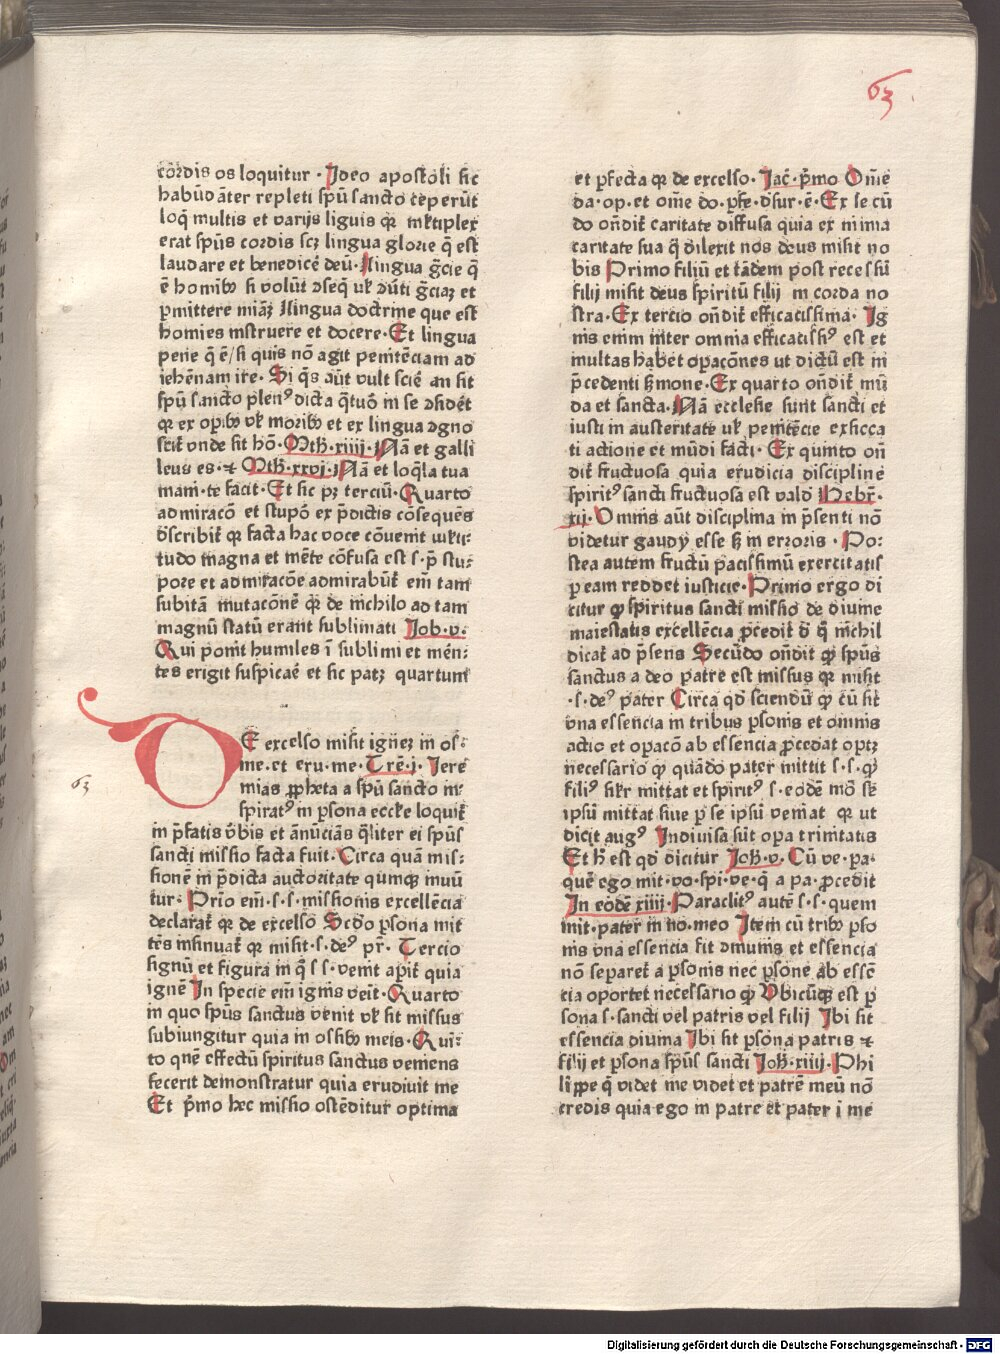 63
cordis os loquitur · Ideo apostoli sic
habūdāter repleti spū sancto ceperūt
loq̄ multis et varijs liguis qr̄ mltiplex
erat spūs cordis scꝫ lingua glorie q̄ est
laudare et benedicē deū · lingua ḡcie q̄
ē homībꝫ si volūt ꝯseq̄ vl̄ ꝯuti ḡciaꝫ et
ꝑmittere miāꝫ lingua doctrine que est
homies instruere et docere · Et lingua
pene q̄ ē / si quis nō agit penitēciam ad
iehēnam ire · Si q̄s aūt vult sciē an sit
spū sancto plenꝰ dicta q̄tuō in se ꝯsidēt
qr̄ ex opibꝫ vl̄ moribꝫ et ex lingua ꝯgno
scit̄ vnde sit hō · Mth̄ · xiiij · Nā et galli
leus es · ⁊ Mth̄ · xxvj · Nā et loq̄la tua
mani · te facit · Et sic pꝫ terciū · Quarto
admiracō et stupō ex p̄dictis cōsequēs
dscribit̄ qr̄ facta hac voce cōuenit mlti:
tudo magna et mēte cōfusa est · s · p̄ stu:
pore et admiracōe admirabūt̄ em̄ tam
subitā mutacōnē qr̄ de nichilo ad tam
magnū statū erant sublimati Iob · v ·
Qui ponit humiles ī sublimi et mēn:
tes erigit suspicaē et sic patꝫ quartum
63
DE excelso misit igneꝫ in os:
me · et eru · me · Trē · j · Iere
mias ꝓpheta a spū sancto in:
spiratꝰ in ꝑsona eccle loquit̄
in p̄fatis v̄bis et ānūciās q̄liter ei spūs
sancti missio facta fuit · Circa quā mis:
sionē in p̄dicta auctoritate qumqꝫ inuū
tur : Prīo em̄ · s · s · missionis excellēcia
declarat̄ qr̄ de excelsō Scd̄o ꝑsona mit
tēs insinuat̄ qr̄ misit · s · deꝰ pr̄ · Tercio
signū et figura in q̄ s s · venit apit̄ quia
ignē In specie em̄ ignis veīt · Quarto
in quo spūs sanctus venit vl̄ sit missus
subiungitur quia in ossibꝫ meis · Qui:
to quē effectū spiritus sanctus veniens
fecerit demonstratur quia erudiuit me
Et p̄mo hec missio ostēditur optima
et ꝑfecta qr̄ de excelso · Iac̄ · p̄mo Om̄e
da · op · et om̄e do · ꝑfe · dsur · ē · Ex secū
do on̄dit̄ caritate diffusa quia ex nimia
caritate sua q̄ dilexit nos deus misit no
bis Primo filiū et tādem post recessū
filij misit deus spiritū filij in corda no
stra · Ex tercio on̄dit̄ efficacissima · Ig
nis enim inter omnia efficacissīꝰ est et
multas habet opacōnes ut dictū est in
p̄cedenti ß̄mone · Ex quarto on̄dit̄ mū
da et sancta · Nā ecclesie sunt sancti et
iusti in austeritate vl̄ penitēcie exsicca
ti actione et mūdi facti · Ex quinto on̄
dit̄ fructuosa quia erudicia discipline
spiritꝰ sancti fructuosa est vald̄ Hebr̄ ·
xij · Omnis aūt disciplina in p̄senti nō
videtur gaudij esse ß̄ in erroris · Po:
stea autem fructū pacissimū exercitatis
ꝑ eam reddet iusticie · Primo ergo di
citur ꝙ spiritus sancti missio de diuine
maiestatis excellēcia ꝓcedit d̄ q̄ nichil
dicat̄ ad p̄sens Secūdo on̄dit ꝙ spūs
sanctus a deo patre est missus qr̄ misit
· s · deꝰ pater Circa qd̄ sciendū qr̄ cū sit
vna essencia in tribus ꝑsonis et omnis
actio et opacō ab essencia ꝓcedat optꝫ
necessario ꝙ quādo pater mittit s · s · ꝙ
filiꝰ silr̄ mittat et spiritꝰ s · eodē mō sē
ipsū mittat siue ꝑ se ipsū veniat qr̄ ut
dicit augꝰ Indiuisa sūt opa trinitatis
Et h̄ est qd̄ dicitur Joh̄ · v · Cū ve · pa ·
quē ego mit · vo · spi · ve · q̄ a pa · ꝓcedit
In eodē xiiij · Paraclitꝰ autē s · s · quem
mit · pater in no · meo Item cū tribꝫ ꝑso
nis vna essencia sit ꝯmunis et essencia
nō separet̄ a ꝑsonis nec ꝑsone ab essē
cia oportet necessario ꝙ Vbicūqꝫ est ꝑ
sona s · sancti vel patris vel filij Ibi sit
essencia diuina Ibi sit ꝑsona patris ⁊
filij et ꝑsona spūs sancti Joh̄ · xiiij · Phi
lippe q̄ videt me videt et patrē meū nō
credis quia ego in patre et pater ī me
Digitalisierung gefördert durch die Deutsche Forschungsgemeinschaft · DFG